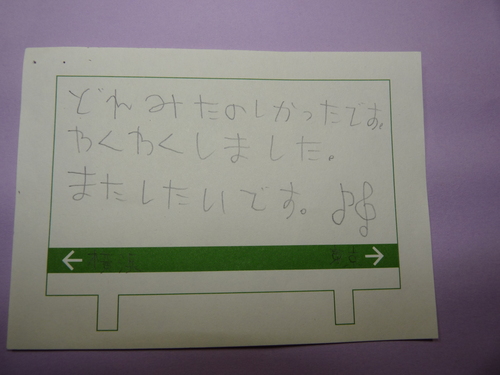 どれみたのしかったです。
わくわくしました。
またしたいです。